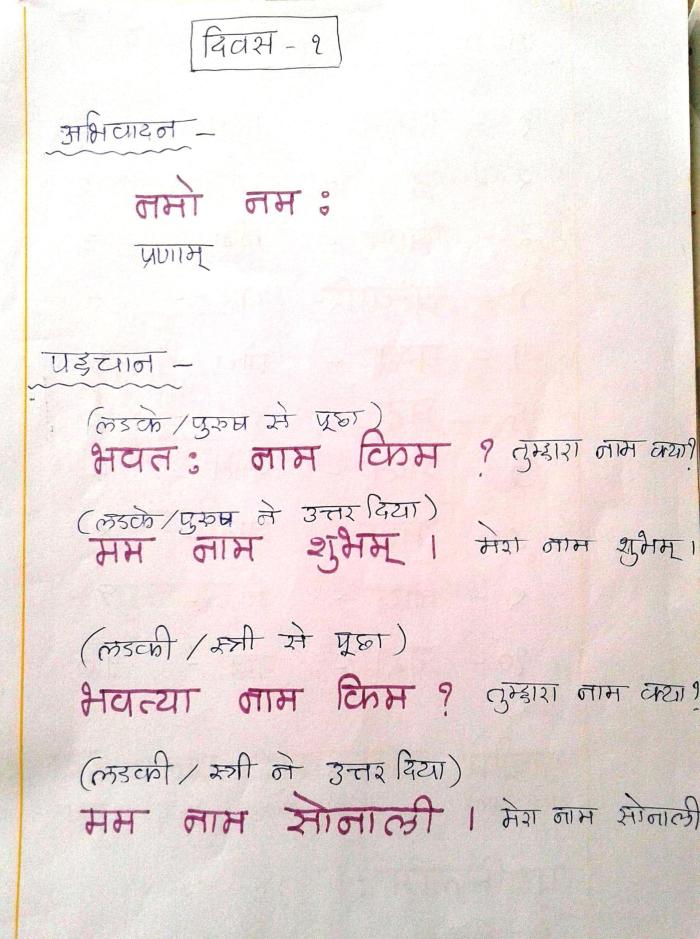 दिवस - १
अभिवादन -
नमो नम :
प्रणाम्
पहचान -
(लडके /पुरुष से पूछा)
भवत : नाम किम ? तुम्हारा नाम क्या?
(लडके /पुरुष ने उत्तर दिया)
मम नाम शुभम् । मेरा नाम शुभम् ।
(लडकी / स्त्री से पूछा)
भवत्या नाम किम ? तुम्हारा नाम क्या?
(लडकी / स्त्री ने उत्तर दिया)
मम नाम सोनाली । मेरा नाम सोनाली